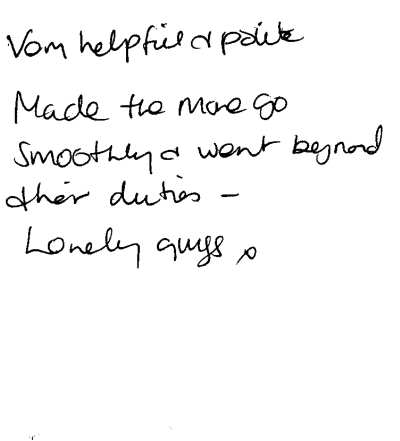 Very helpful & polite
Made the move go
smoothly & went beyond
their duties -
Lovely guys